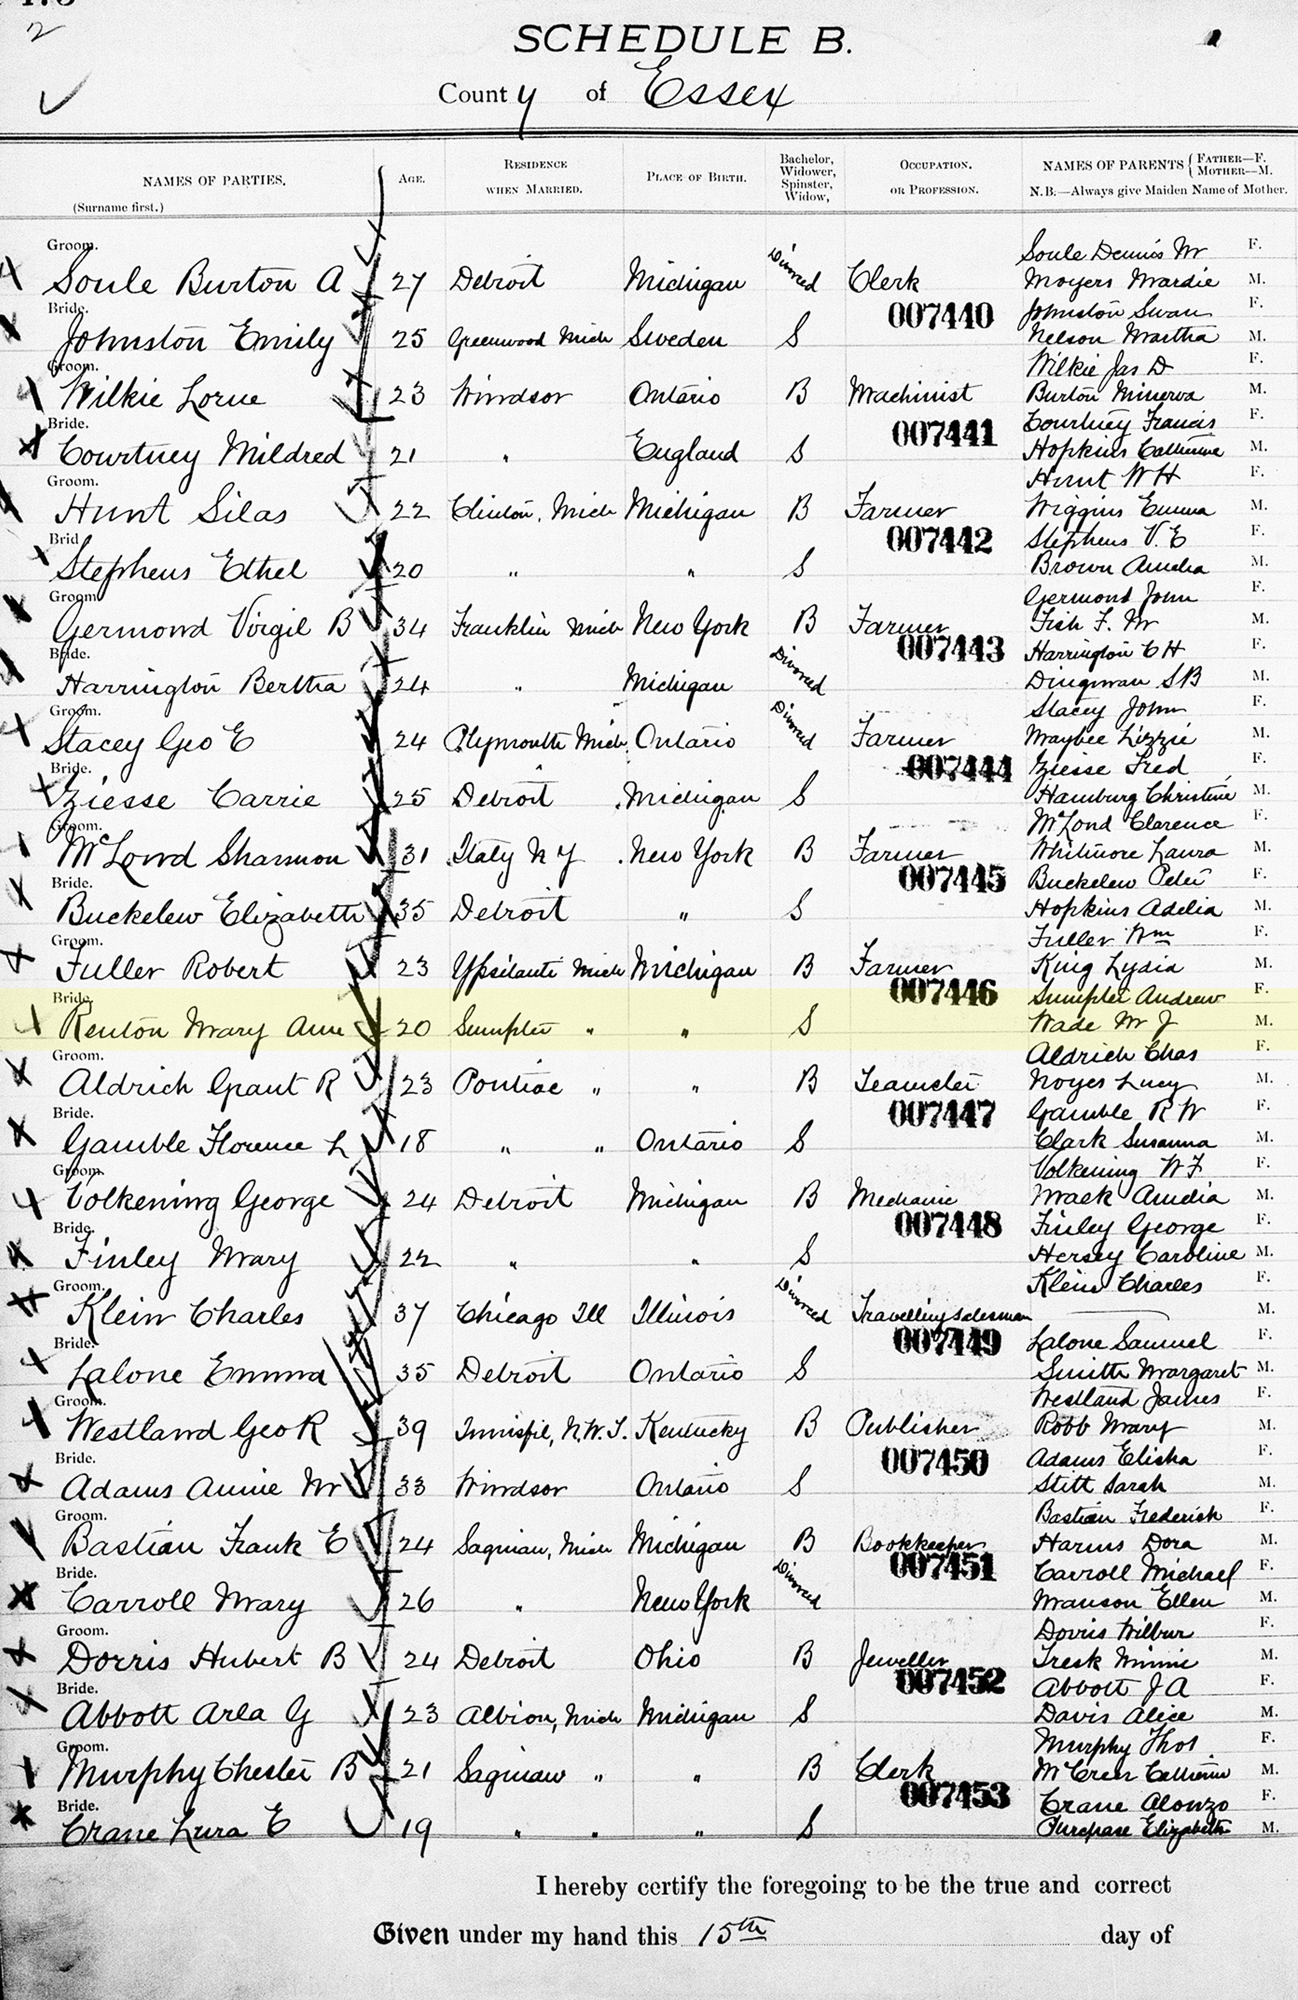 2
SCHEDULE B.
County of Essex
NAMES OF PARTIES.
(Surname first.)
AGE.
RESIDENCE
WHEN MARRIED.
PLACE OF BIRTH.
Bachelor,
Widower,
Spinster,
Widow,
OCCUPATION.
OR PROFESSION.
NAMES OF PARENTS { FATHER—F.
MOTHER—M.
N.B.—Always give Maiden Name of Mother.
Groom. Soule Dennis W F.
Soule Burton A 27 Detroit Michigan Divorced Clerk Moyers Mardie M.
Bride. 007440 Johnston Swan F.
Johnston Emily 25 Greenwood Mich Sweden S Nelson Martha M.
Groom. Wilkie Jas D F.
Wilkie Lorne 23 Windsor Ontario B Machinist Burton Minerva M.
Bride. 007441 Courtney Francis F.
Courtney Mildred 21 " England S Hopkins Catherine M.
Groom. Hunt W H F.
Hunt Silas 22 Clinton, Mich Michigan B Farmer Wiggins Emma M.
Brid 007442 Stephens V. E F.
Stephens Ethel 20 " " S Brown Amelia M.
Groom Germond John F.
Germond Virgil B 34 Franklin Mich New York B Farmer Fish F. M M.
Bride. 007443 Harrington C H F.
Harrington Bertha 24 " Michigan Divorced Dingman S B M.
Groom. Stacey John F.
Stacey Geo E 24 Plymouth Mich. Ontario Divorced Farmer Maybee Lizzie M.
Bride. 007444 Ziesse Fred F.
Ziesse Carrie 25 Detroit Michigan S Hamburg Christine M.
Groom. McLoud Clarence F.
McLoud Shannon 31 Italy N Y New York B Farmer Whitmore Laura M.
Bride. 007445 Buckelew Peter F.
Buckelew Elizabeth 35 Detroit " S Hopkins Adelia M.
Groom. Fuller Wm F.
Fuller Robert 23 Ypsilanti Mich Michigan B Farmer King Lydia M.
Bride. 007446 Sumpter Andrew F.
Renton Mary Ann 20 Sumpter " " S Wade M J M.
Groom. Aldrich Chas F.
Aldrich Grant R 23 Pontiac " " B Teamster Noyes Lucy M.
Bride. 007447 Gamble R W F.
Gamble Florence L 18 " " Ontario S Clark Susanna M.
Groom. Volkening W F F.
Volkening George 24 Detroit Michigan B Mechanic Maek Amelia M.
Bride. 007448 Finley George F.
Finley Mary 22 " " S Hersey Caroline M.
Groom. Klein Charles F.
Klein Charles 37 Chicago Ill Illinois Divorced Travelling salesman M.
Bride. 007449 Lalone Samuel F.
Lalone Emma 35 Detroit Ontario S Smith Margaret M.
Groom. Westland James F.
Westland Geo R 39 Innisfil, N.W.T. Kentucky B Publisher Robb Mary M.
Bride. 007450 Adams Elisha F.
Adams Annie M 33 Windsor Ontario S Stitt Sarah M.
Groom. Bastian Frederick F.
Bastian Frank E 24 Saginaw, Mich Michigan B Bookkeeper Harms Dora M.
Bride. 007451 Carroll Michael F.
Carroll Mary 26 " New York Divorced Manson Ellen M.
Groom. Dorris Wilbur F.
Dorris Hubert B 24 Detroit Ohio B Jeweller Tresk Minnie M.
Bride. 007452 Abbott J A F.
Abbott Arla G 23 Albion, Mich Michigan S Davis Alice M.
Groom. Murphy Thos. F.
Murphy Chester B 21 Saginaw " " B Clerk McCreer Catherine M.
Bride. 007453 Crane Alonzo F.
Crane Lura E 19 " " " S Purchase Elizabeth M.
I hereby certify the foregoing to be the true and correct
Given under my hand this 15th day of